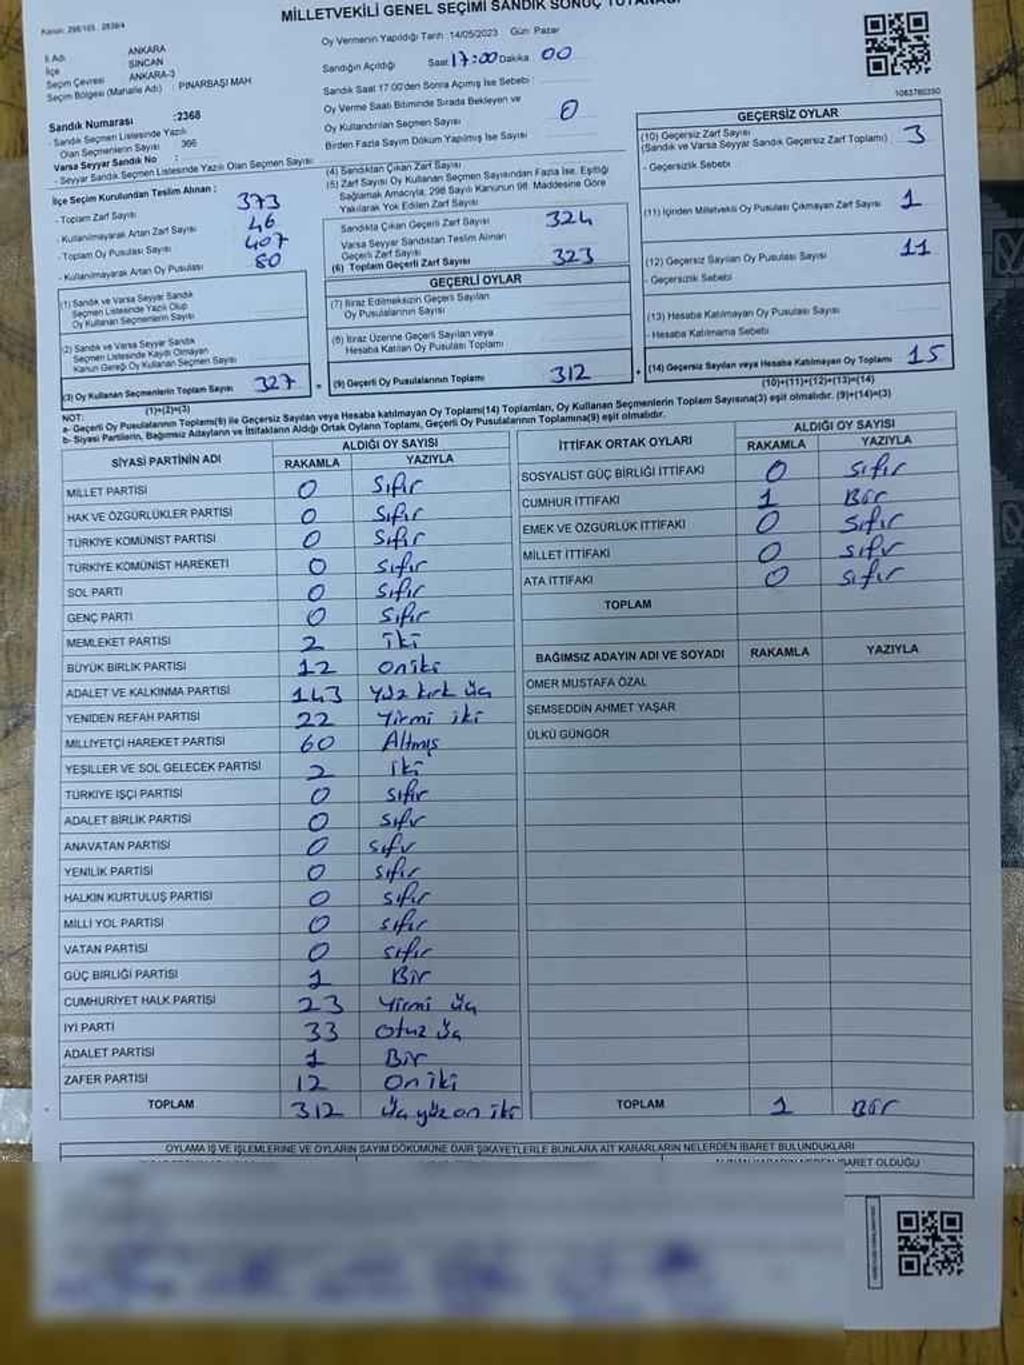 MİLLETVEKİLİ GENEL SEÇİMİ SANDIK SONUÇ TUTANAĞI
İl Adı ANKARA
İlçe SİNCAN
Seçim Çevresi ANKARA-3
Seçim Bölgesi (Mahalle Adı) : PINARBAŞI MAH
Sandık Numarası :2368
- Sandık Seçmen Listesinde Yazılı
Olan Seçmenlerin Sayısı
Varsa Seyyar Sandık No :
- Seyyar Sandık Seçmen Listesinde Yazılı Olan Seçmen Sayısı :
Oy Vermenin Yapıldığı Tarih :14/05/2023 Gün: Pazar
Sandığın Açıldığı Saat 17:00 Dakika 00
Sandık Saat 17.00'den Sonra Açılmış İse Sebebi :
Oy Verme Saati Bitiminde Sırada Bekleyen ve
Oy Kullandırılan Seçmen Sayısı 0
Birden Fazla Sayım Dökümü Yapılmış İse Sayısı
1083780390
İlçe Seçim Kurulundan Teslim Alınan :
- Toplam Zarf Sayısı 373
- Kullanılmayarak Artan Zarf Sayısı 46
- Toplam Oy Pusulası Sayısı 407
- Kullanılmayarak Artan Oy Pusulası 80
(1) Sandık ve Varsa Seyyar Sandık
Seçmen Listesinde Yazılı Olup
Oy Kullanan Seçmenlerin Sayısı
(2) Sandık ve Varsa Seyyar Sandık
Seçmen Listesinde Kaydı Olmayan
Kanun Gereği Oy Kullanan Seçmen Sayısı
(3) Oy Kullanan Seçmenlerin Toplam Sayısı 327
(1)+(2)=(3)
(4) Sandıktan Çıkan Zarf Sayısı
(5) Zarf Sayısı Oy Kullanan Seçmen Sayısından Fazla İse, Eşitliği
Sağlamak Amacıyla, 298 Sayılı Kanunun 98. Maddesine Göre
Yakılarak Yok Edilen Zarf Sayısı
Sandıkta Çıkan Geçerli Zarf Sayısı 324
Varsa Seyyar Sandıktan Teslim Alınan
Geçerli Zarf Sayısı
(6) Toplam Geçerli Zarf Sayısı 323
GEÇERLİ OYLAR
(7) İtiraz Edilmeksizin Geçerli Sayılan
Oy Pusulalarının Sayısı
(8) İtiraz Üzerine Geçerli Sayılan veya
Hesaba Katılan Oy Pusulası Toplamı
(9) Geçerli Oy Pusulalarının Toplamı 312
GEÇERSİZ OYLAR
(10) Geçersiz Zarf Sayısı 3
(Sandık ve Varsa Seyyar Sandık Geçersiz Zarf Toplamı)
- Geçersizlik Sebebi
(11) İçinden Milletvekili Oy Pusulası Çıkmayan Zarf Sayısı 1
(12) Geçersiz Sayılan Oy Pusulası Sayısı 11
- Geçersizlik Sebebi
(13) Hesaba Katılmayan Oy Pusulası Sayısı
- Hesaba Katılmama Sebebi
(14) Geçersiz Sayılan veya Hesaba Katılmayan Oy Toplamı 15
(10)+(11)+(12)+(13)=(14)
NOT:
a- Geçerli Oy Pusulalarının Toplamı(9) ile Geçersiz Sayılan veya Hesaba katılmayan Oy Toplamı(14) Toplamları, Oy Kullanan Seçmenlerin Toplam Sayısına(3) eşit olmalıdır. (9)+(14)=(3)
b- Siyasi Partilerin, Bağımsız Adayların ve İttifakların Aldığı Ortak Oyların Toplamı, Geçerli Oy Pusulalarının Toplamına(9) eşit olmalıdır.
SİYASİ PARTİNİN ADI ALDIĞI OY SAYISI
RAKAMLA YAZIYLA
MİLLET PARTİSİ 0 Sıfır
HAK VE ÖZGÜRLÜKLER PARTİSİ 0 Sıfır
TÜRKİYE KOMÜNİST PARTİSİ 0 Sıfır
TÜRKİYE KOMÜNİST HAREKETİ 0 Sıfır
SOL PARTİ 0 Sıfır
GENÇ PARTİ 0 Sıfır
MEMLEKET PARTİSİ 2 İki
BÜYÜK BİRLİK PARTİSİ 12 on iki
ADALET VE KALKINMA PARTİSİ 143 Yüz kırk üç
YENİDEN REFAH PARTİSİ 22 Yirmi iki
MİLLİYETÇİ HAREKET PARTİSİ 60 Altmış
YEŞİLLER VE SOL GELECEK PARTİSİ 2 İki
TÜRKİYE İŞÇİ PARTİSİ 0 sıfır
ADALET BİRLİK PARTİSİ 0 sıfır
ANAVATAN PARTİSİ 0 sıfır
YENİLİK PARTİSİ 0 sıfır
HALKIN KURTULUŞ PARTİSİ 0 sıfır
MİLLİ YOL PARTİSİ 0 sıfır
VATAN PARTİSİ 0 sıfır
GÜÇ BİRLİĞİ PARTİSİ 1 Bir
CUMHURİYET HALK PARTİSİ 23 Yirmi üç
İYİ PARTİ 33 Otuz üç
ADALET PARTİSİ 1 Bir
ZAFER PARTİSİ 12 On iki
TOPLAM 312 Üç yüz on iki
İTTİFAK ORTAK OYLARI ALDIĞI OY SAYISI
RAKAMLA YAZIYLA
SOSYALİST GÜÇ BİRLİĞİ İTTİFAKI 0 sıfır
CUMHUR İTTİFAKI 1 Bir
EMEK VE ÖZGÜRLÜK İTTİFAKI 0 Sıfır
MİLLET İTTİFAKI 0 sıfır
ATA İTTİFAKI 0 sıfır
TOPLAM
BAĞIMSIZ ADAYIN ADI VE SOYADI RAKAMLA YAZIYLA
ÖMER MUSTAFA ÖZAL
ŞEMSEDDİN AHMET YAŞAR
ÜLKÜ GÜNGÖR
TOPLAM 1 Bir
OYLAMA İŞ VE İŞLEMLERİNE VE OYLARIN SAYIM DÖKÜMÜNE DAİR ŞİKAYETLERLE BUNLARA AİT KARARLARIN NELERDEN İBARET BULUNDUKLARI
İBARET OLDUĞU